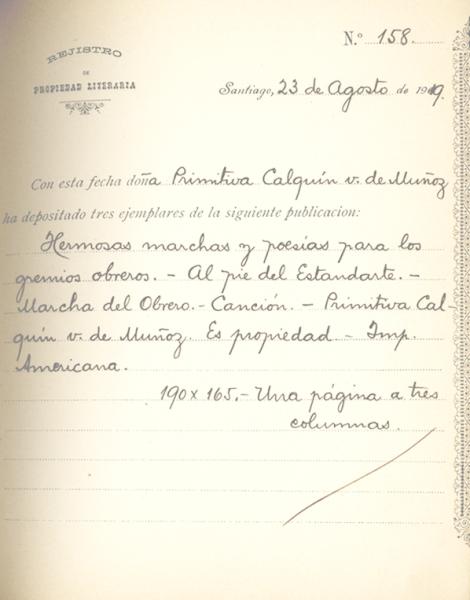 N.º 158
REJISTRO
DE
PROPIEDAD LITERARIA
Santiago, 23 de Agosto de 1919.
Con esta fecha doña Primitiva Calquín v. de Muñoz
ha depositado tres ejemplares de la siguiente publicacion:
Hermosas marchas y poesías para los
gremios obreros. - Al pie del Estandarte. -
Marcha del Obrero. - Canción. - Primitiva Cal-
quín v. de Muñoz. Es propiedad. - Imp.
Americana.
190 x 165. - Una página a tres
columnas.